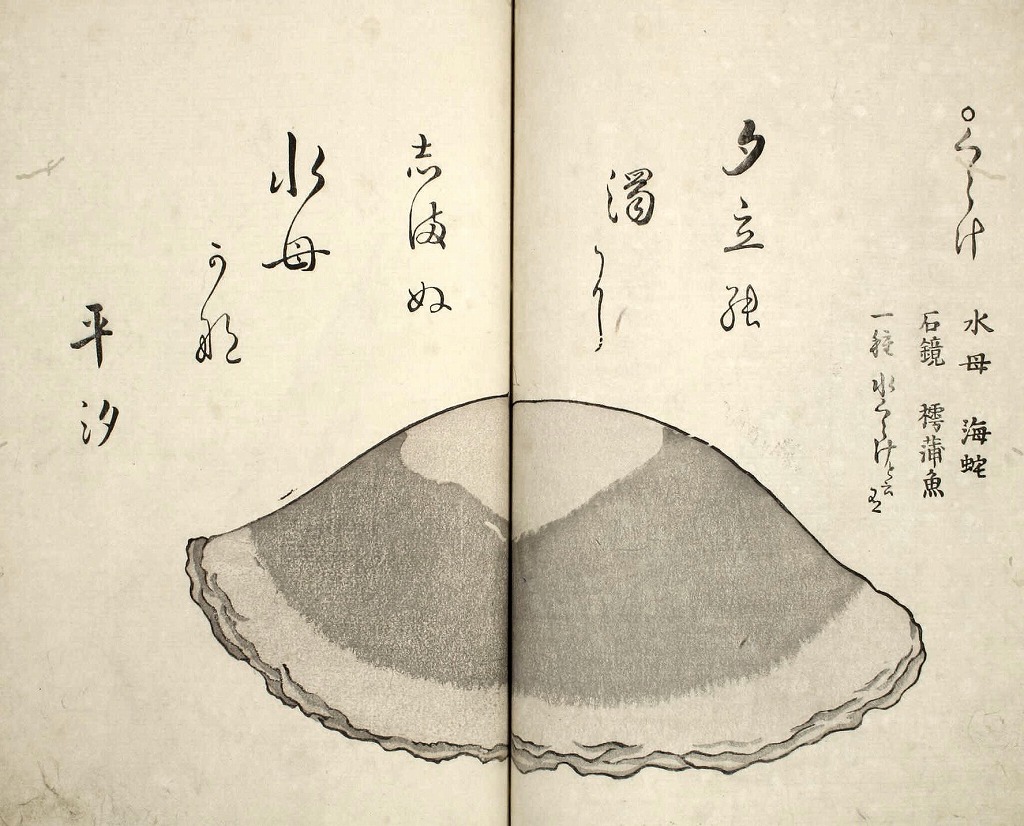 ○くらけ 水母 海蛇
石鏡 樗蒲魚
一種水くらけと云有
夕立の
濁りに
しまぬ
水母
かな
平汐